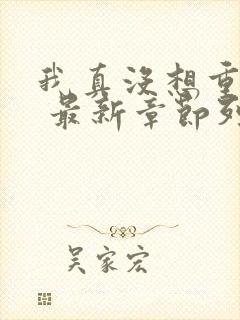 我真没想重
最新章节列
吴家宏